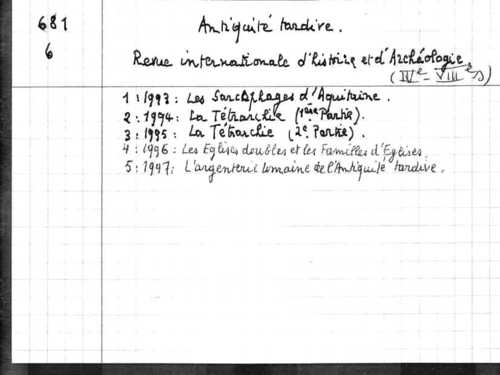 681
6
Antiquité tardive.
Revue internationale d'histoire et d'Archéologie.
(IVe - VIIIe s)
1 : 1993 : Les Sarcophages d'Aquitaine.
2 : 1994 : La Tétrarchie (1ère Partie).
3 : 1995 : La Tétrarchie (2e Partie).
4 : 1996 : Les Eglises doubles et les Familles d'Eglises.
5 : 1997 : L'argenterie romaine de l'Antiquité tardive.